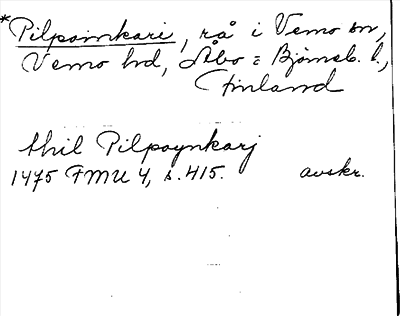 *Pilpoinkari, rå i Vemo sn,
Vemo hd, Åbo = Björneb. l.,
Finland
thil Pilpoynkarj
1475 FMU 4, s. 415. avskr.